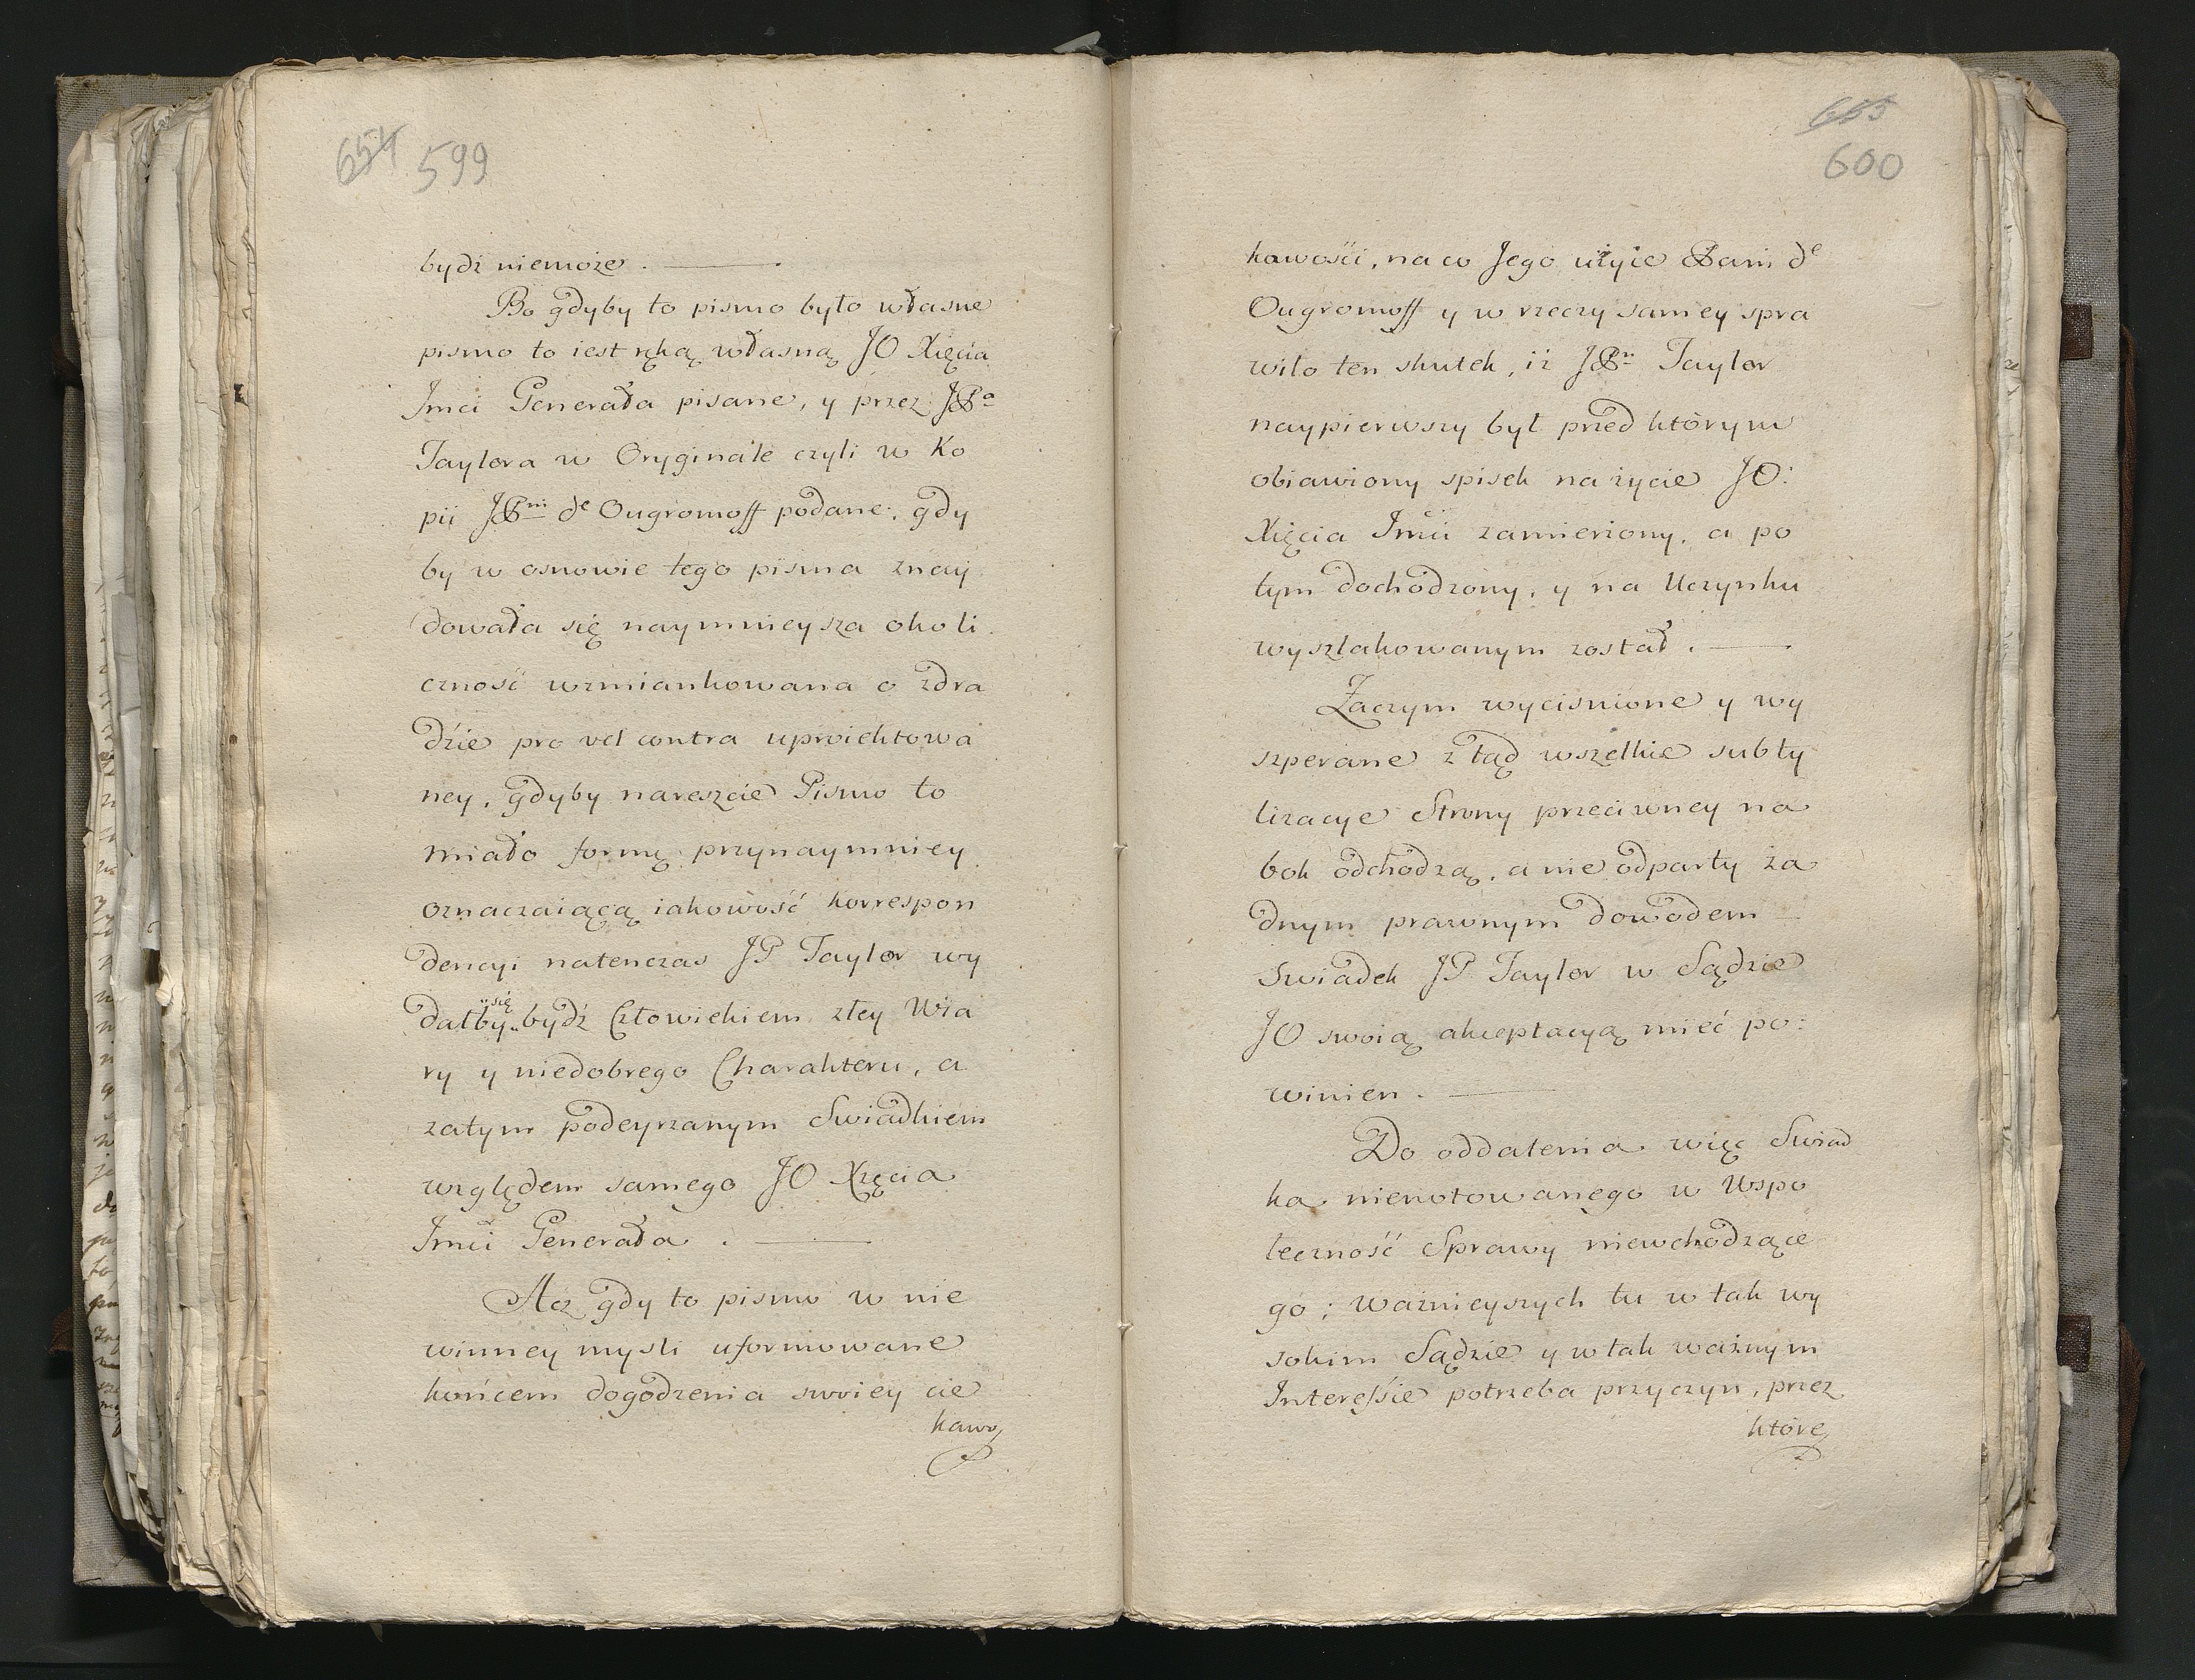 654 599
bydź niemoże. —
Bo gdyby to pismo było własne
pismo to iest ręką własną JO Xięcia
Jmci Generała pisane, y przez JPa
Taylora w Oryginale czyli w Ko
pii JPni de Ougromoff podane, gdy
by w osnowie tego pisma znay
dowała się naymnieysza okoli
czność wzmiankowana o zdra
dzie pro vel contra uproiektowa
ney, gdyby nareszcie Pismo to
miało formę przynaymniey
oznaczaiącą iakowość korrespon
dencyi natenczas JP Taylor wy
dałby się bydź Człowiekiem złey Wia
ry y niedobrego Charakteru, a
zatym podeyrzanym Swiadkiem
względem samego JO Xięcia
Jmći Generała. —
Acz gdy to pismo w nie
winney mysli uformowane
końcem dogodzenia swoiey cie
kawo
600
kawośći, na co Jego użyie Pani de
Ougromoff y w rzeczy samey spra
wiło ten skutek, iż JPn Taylor
naypierwszy był przed którym
obiawiony spisek na życie JO:
Xięcia Jmći zamierzony, a po
tym dochodzony, y na Uczynku
wyszlakowanym został. —
Zaczym wycisnione y wy
szperane z tąd wszelkie subty
lizacye Strony przeciwney na
bok odchodzą, a nie odparty ża
dnym prawnym dowodem
Swiadek JP Taylor w Sądzie
JO swoią akceptacyą mieć po:
winien. —
Do oddalenia więc Swiad
ka nienotowanego w Wspo
łeczność Sprawy niewchodzące
go; ważnieyszych tu w tak wy
sokim Sądzie y w tak ważnym
Interessie potrzeba przyczyn, przez
które